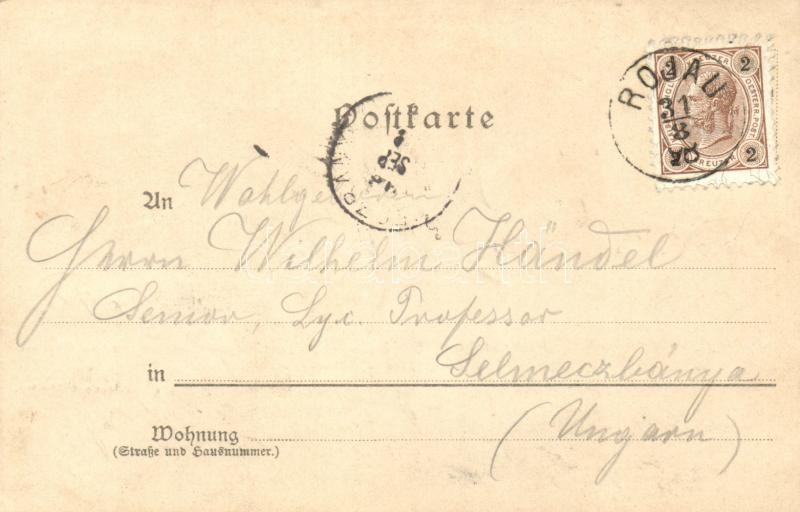 Postkarte
2 2
2 2
KREUZER
OESTERR. POST.
ROJAU
31
8
SEP
An Wohlgeboren
Herrn Wilhelm Händel
Senior, Lyc. Professor
in Selmeczbánya
Wohnung (Ungarn)
(Straße und Hausnummer.)